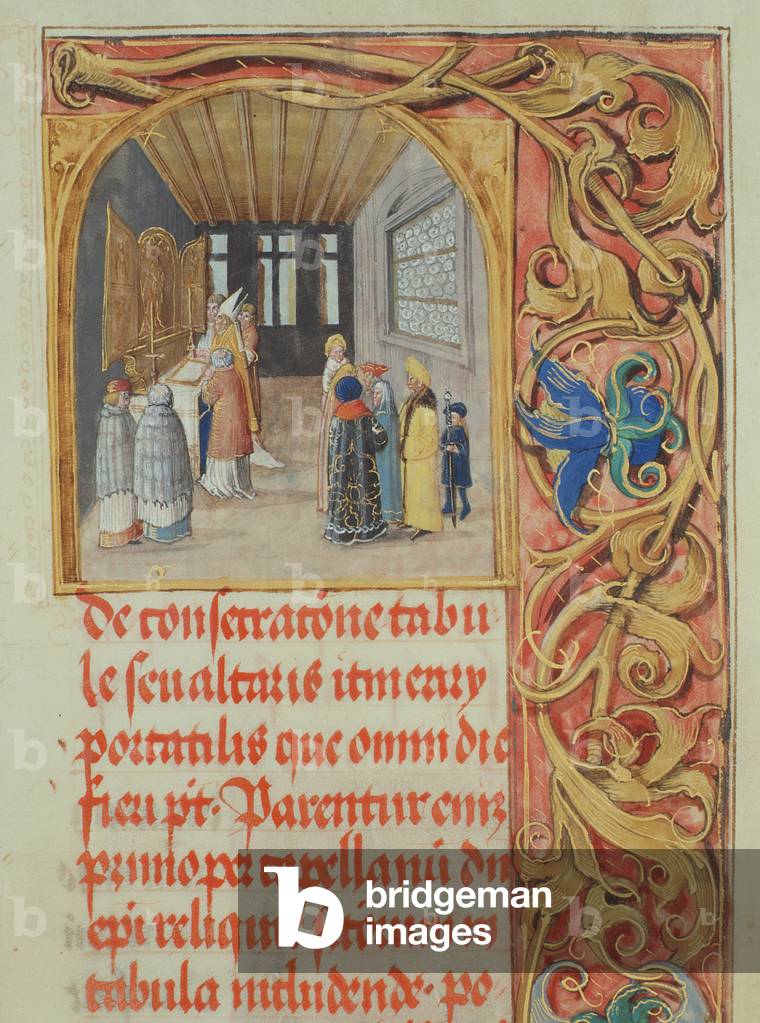 De consecracōne tabu
le seu altaris itinerary
portatilis que omni die
fieri pt̄. Parentur enī
primo per capellanū dn̄i
epi reliqu
tabula includende. po
b bridgeman
images